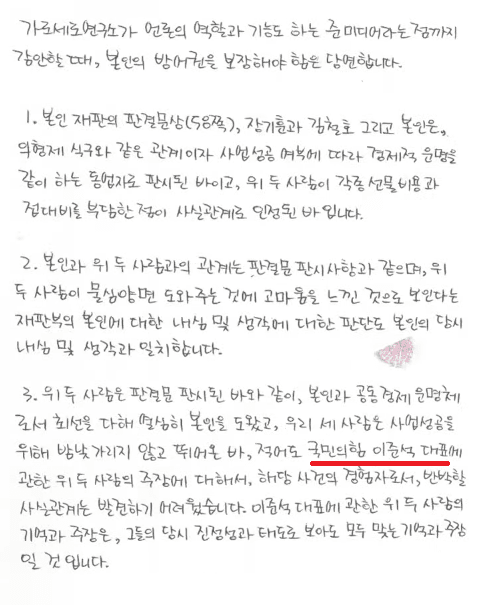 가로세로연구소가 언론의 역할과 기능도 하는 준 미디어라는 점까지
감안할 때, 본인의 방어권을 보장해야 함은 당연합니다.
1. 본인 재판의 판결문상(58쪽), 장기훈과 김철호 그리고 본인은,
의형제 식구와 같은 관계이자 사업성공 여부에 따라 경제적 운명을
같이 하는 동업자로 판시된 바이고, 위 두 사람이 각종 선물비용과
접대비를 부담한 점이 사실관계로 인정된 바 입니다.
2. 본인과 위 두 사람과의 관계는 판결문 판시사항과 같으며, 위
두 사람이 물심양면 도와주는 것에 고마움을 느낀 것으로 보인다는
재판부의 본인에 대한 내심 및 생각에 대한 판단도 본인의 당시
내심 및 생각과 일치합니다.
3. 위 두 사람은 판결문 판시된 바와 같이, 본인과 공동경제 운명체
로서 최선을 다해 열심히 본인을 도왔고, 우리 세 사람은 사업성공을
위해 밤낮 가리지 않고 뛰어온 바, 적어도 국민의힘 이준석 대표에
관한 위 두 사람의 주장에 대해서, 해당 사건의 경험자로서, 반박할
사실관계는 발견하기 어려웠습니다. 이준석 대표에 관한 위 두 사람의
기억과 주장은, 그들의 당시 진정성과 태도로 보아도 모두 맞는 기억과 주장
일 것 입니다.